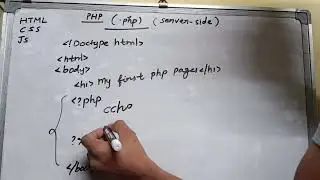 HTML
CSS
JS
PHP (.php) (server-side)
<!Doctype html>
<html>
<body>
<h1> my first php page</h1>
<?php
echo
?>
</body